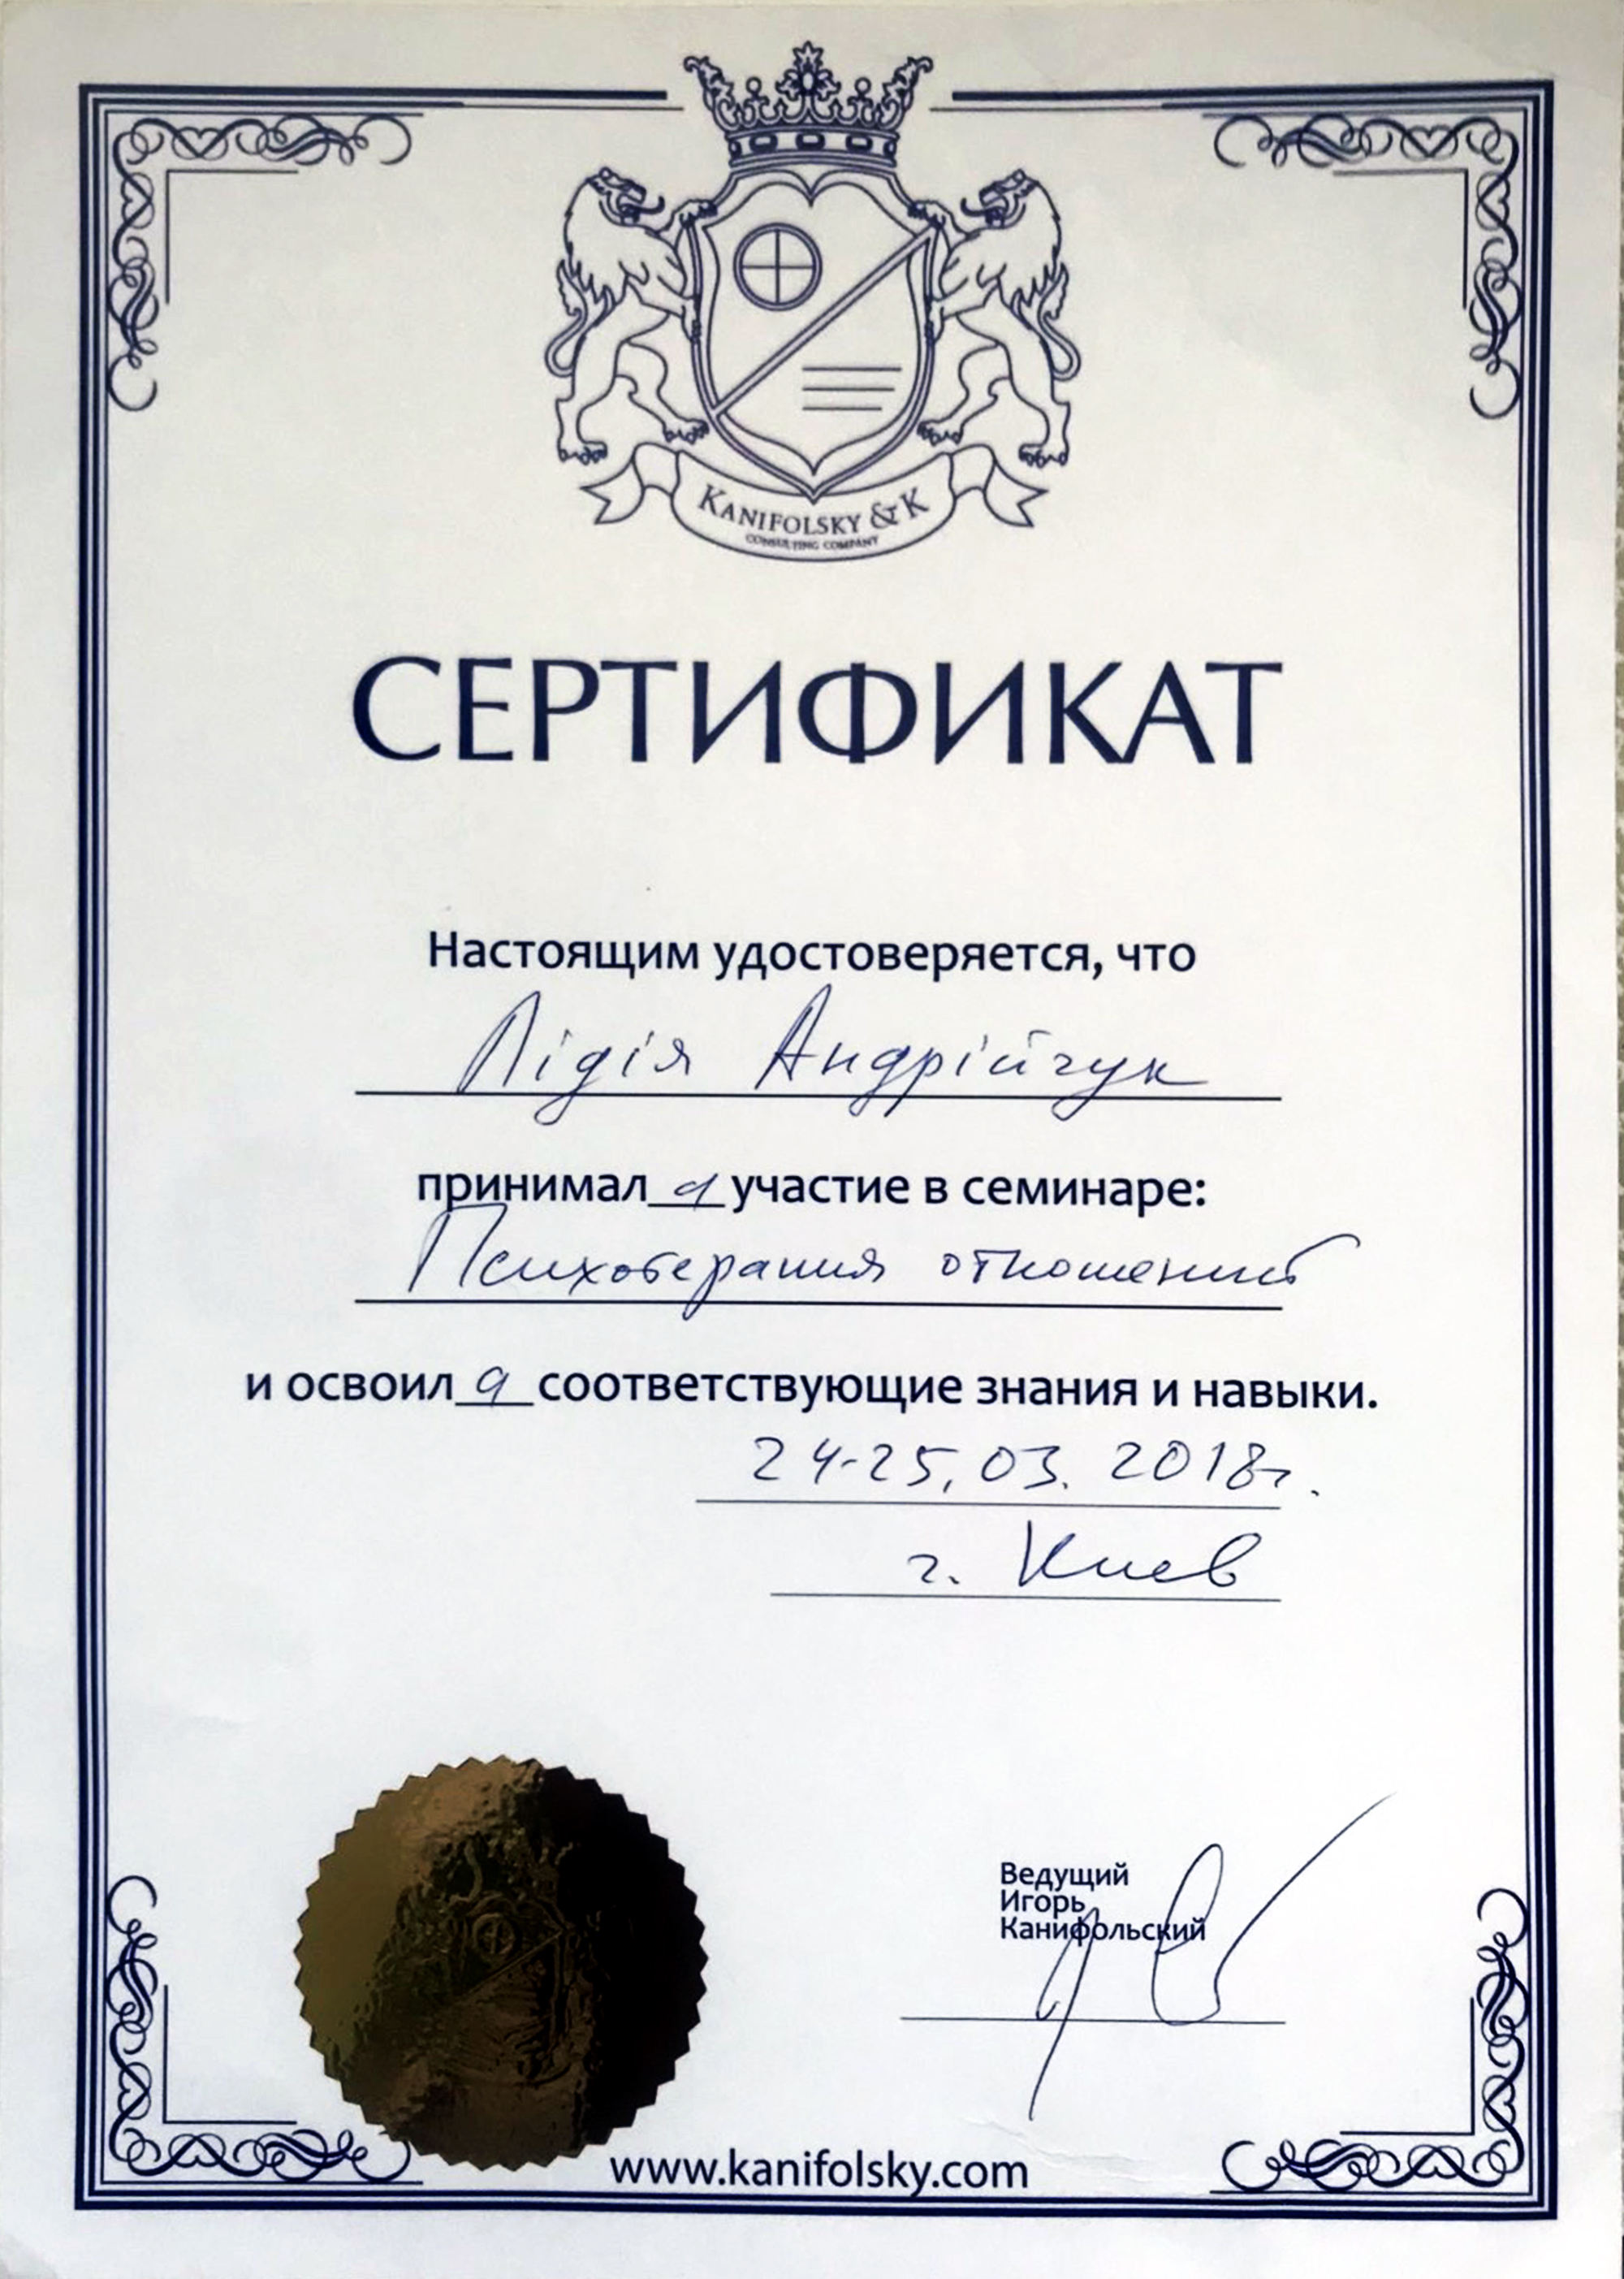 KANIFOLSKY & K
CONSULTING COMPANY
СЕРТИФИКАТ
Настоящим удостоверяется, что
Лідія Андрійчук
принимал а участие в семинаре:
Психотерапия отношений
и освоил а соответствующие знания и навыки.
24-25.03.2018г.
г. Киев
Ведущий
Игорь
Канифольский
www.kanifolsky.com